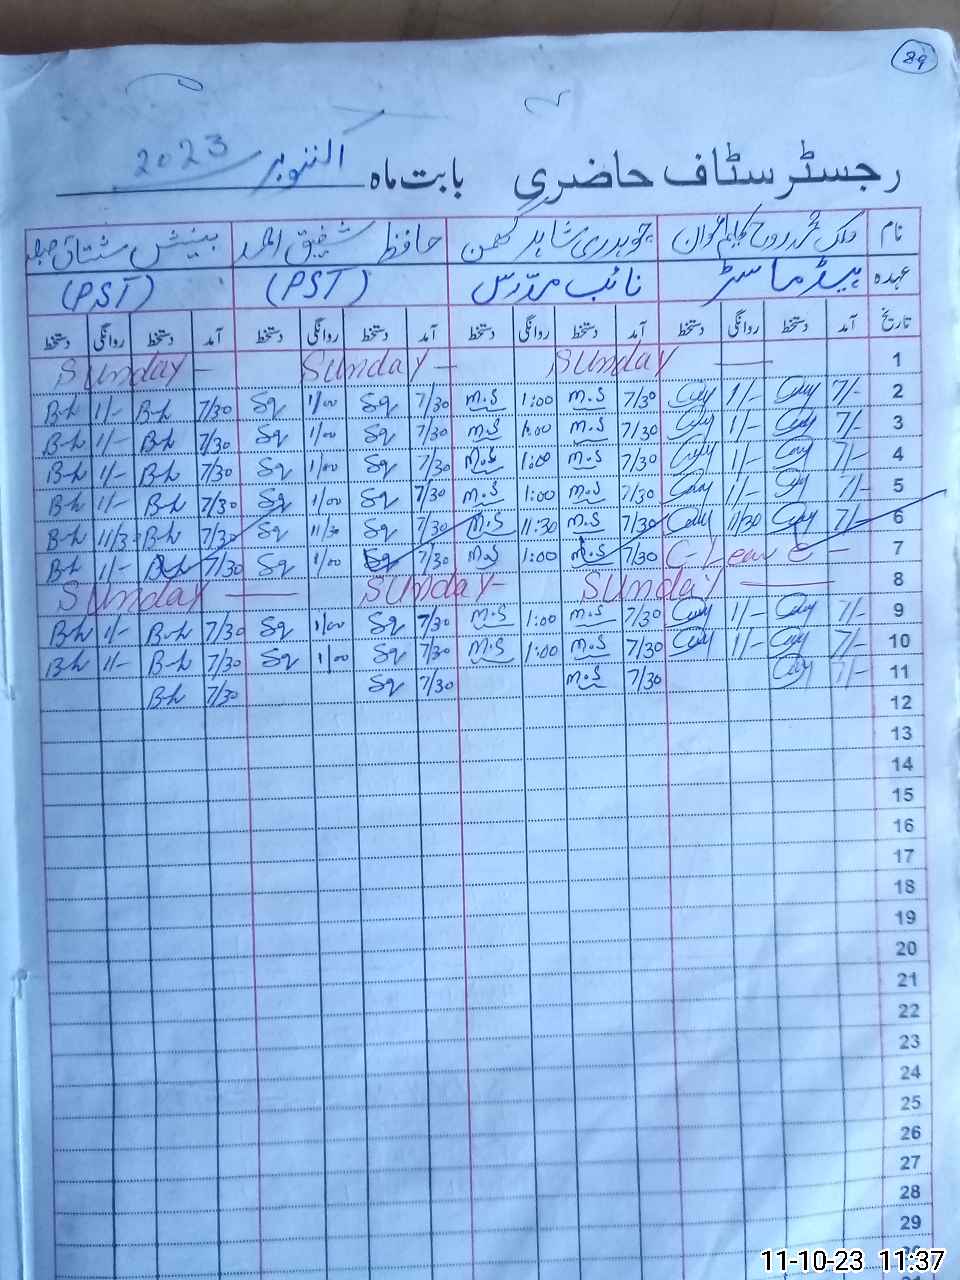 89
رجسٹر سٹاف حاضری بابت ماہ اکتوبر 2023
نام حافظ شفیق احمد بینش مشتاق
عہدہ ہیڈ ماسٹر نائب مدرس (PST) (PST)
تاریخ آمد دستخط روانگی دستخط آمد دستخط روانگی دستخط آمد دستخط روانگی دستخط آمد دستخط روانگی دستخط
Sunday – Sunday – Sunday — 1
B-h 1/- B-h 7/30 Sq 1/00 Sq 7/30 m.S 1:00 m.S 7/30 1/- 7/- 2
B-h 1/- B-h 7/30 Sq 1/00 Sq 7/30 m.S 1:00 m.S 7/30 1/- 7/- 3
B-h 1/- B-h 7/30 Sq 1/00 Sq 7/30 m.S 1:00 m.S 7/30 1/- 7/- 4
B-h 1/- B-h 7/30 Sq 1/00 Sq 7/30 m.S 1:00 m.S 7/30 1/- 7/- 5
B-h 11/30 B-h 7/30 Sq 11/30 Sq 7/30 m.S 11:30 m.S 7/30 11/30 7/- 6
B-h 1/- B-h 7/30 Sq 1/00 Sq 7/30 m.S 1:00 m.S 7/30 C-Leave – 7
Sunday — Sunday – Sunday — 8
B-h 1/- B-h 7/30 Sq 1/00 Sq 7/30 m.S 1:00 m.S 7/30 1/- 7/- 9
B-h 1/- B-h 7/30 Sq 1/00 Sq 7/30 m.S 1:00 m.S 7/30 1/- 7/- 10
B-h 7/30 Sq 7/30 m.S 7/30 7/- 11
12
13
14
15
16
17
18
19
20
21
22
23
24
25
26
27
28
29
11-10-23 11:37